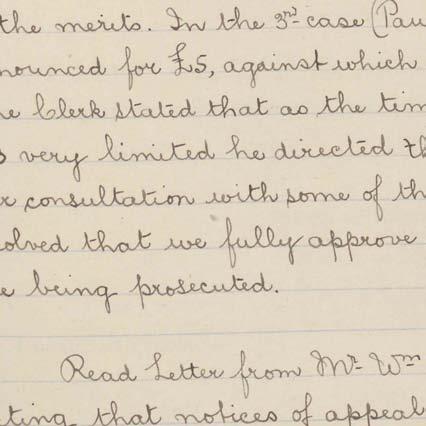 the merits. In the 3rd case (Pau
nounced for £5, against which
he Clerk stated that as the tim
s very limited he directed th
r consultation with some of th
olved that we fully approve
e being prosecuted.
Read Letter from Mr Wm
ting that notices of appeal